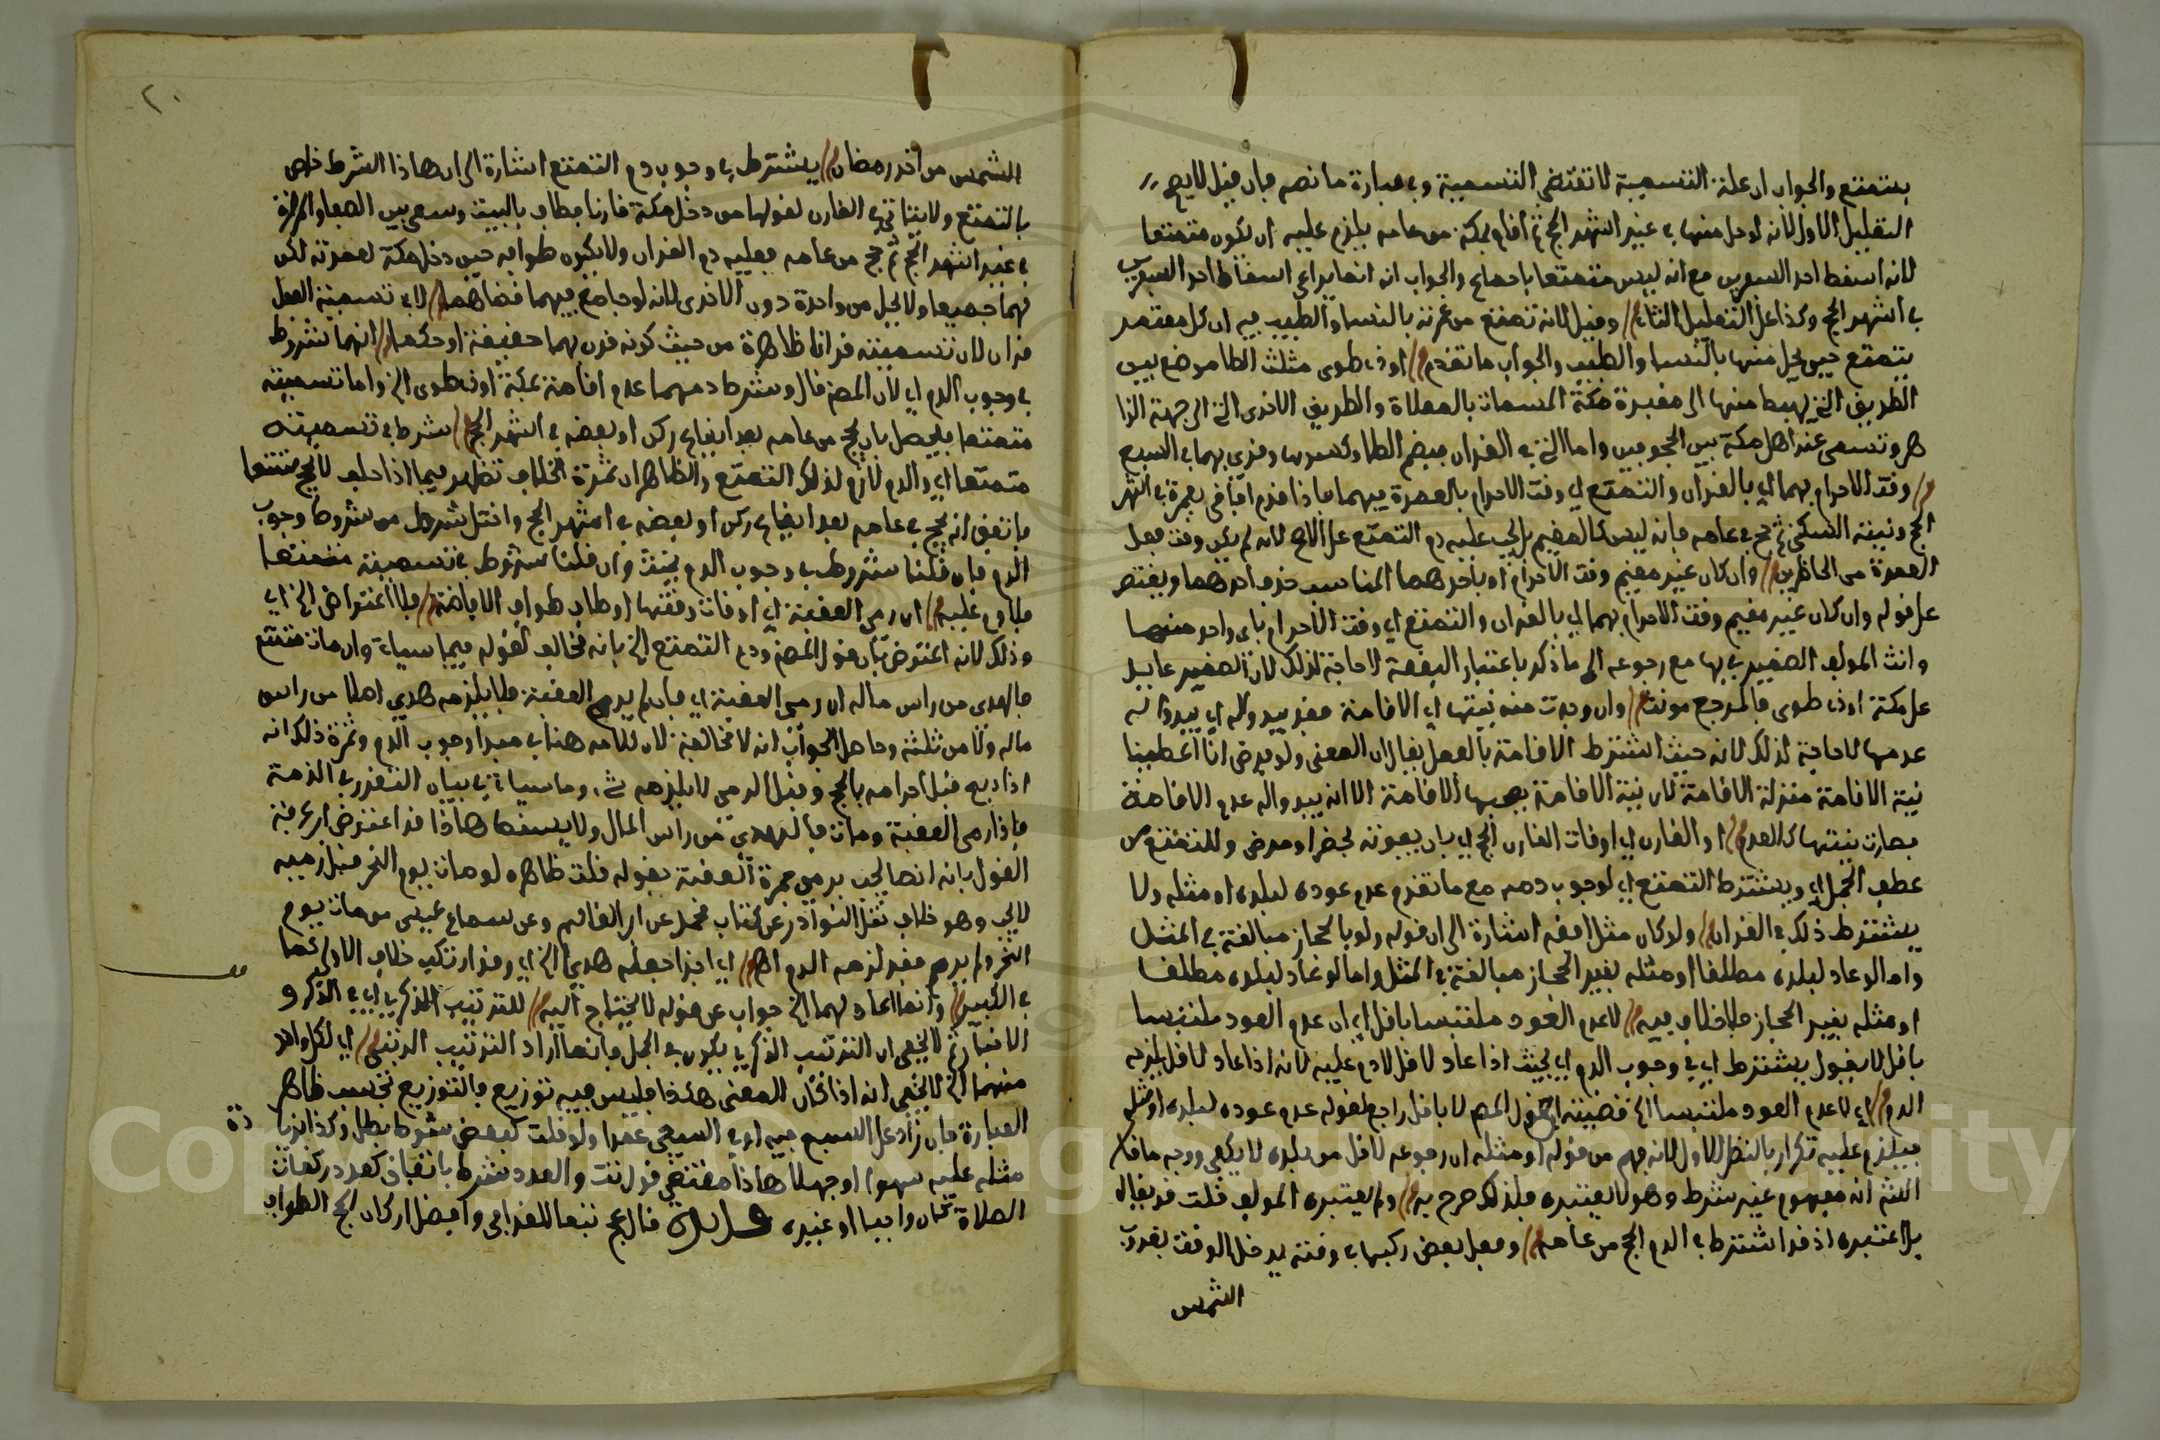 بتمتع والجواب ان علة التسمية لا تقتضي التسمية وفي عبارة ما نصه فان قيل لا يصح
التعليل الاول لانه لو حل منها في غير اشهر الحج ثم اقام بمكة من عامه يلزم عليه ان يكون متمتعا
لانه اسقط احد السفرين مع انه ليس متمتعا باجماع والجواب انه انما يراعى اسقاط احد السفرين
في اشهر الحج وكذا على التعليل الثاني وقيل لانه تمتع من عمرته بالنساء والطيب فيه ان كل معتمر
يتمتع حين يحل منها بالنساء والطيب والجواب ما تقدم او ذي طوى مثلث الطا موضع بين
الطريق التي يهبط منها الى مقبرة مكة المسمات بالمعلاة والطريق الاخرى التي الى جهة الزا
هر وتسمى عند اهل مكة بين الحجوبين واما التي في القران فبضم الطا وكسرها وقرئ بهما في السبع
وقت الاحرام بهما اي بالقران والتمتع اي وقت الاحرام بالعمرة فيهما فاذا قدم افاقي بعمرة في اشهر
الحج ونيته السكنى ثم حج في عامه فانه ليس كالمقيم بل يجب عليه دم التمتع على الاصح لانه لم يكن وقت فعل
العمرة من الحاضرين وان كان غير مقيم وقت الاحرام او باحدهما المناسب حذف احدهما ويقتصر
على قوله وان كان غير مقيم وقت الاحرام بهما اي بالقران والتمتع اي وقت الاحرام باي واحد منهما
وانث المولف الضمير في بها مع رجوعه الى ما ذكر باعتبار البقعة لا حاجة لذلك لان الضمير عايد
على مكة او ذي طوى فالمرجع مونث وان وجدت منه نيتها اي الاقامة فقد يبدو له اي يبدوا له
عدمها لا حاجة لذلك لانه حيث اشترط الاقامة بالفعل يقال ان المعنى ولو فرض انا اعطينا
نية الاقامة منزلة الاقامة لان نية الاقامة يصحبها الاقامة الا انه يبدو له عدم الاقامة
فصارت نيتها كالعدم او الفارن اي اوفات الفارن الحج اي بان يفوته لحضر او مرض وللتمتع من
عطف الجمل اي ويشترط التمتع اي لوجوب دمه مع ما تقدم عدم عوده لبلده او مثله ولا
يشترط ذلك في القران ولو كان مثل افقه اشارة الى ان قوله ولو بالحجاز مبالغة في المثل
واما لو عاد لبلده مطلقا او مثله بغير الحجاز مبالغة في المثل واما لو عاد لبلده مطلقا
او مثله بغير الحجاز فلا خلاف فيه لا عدم العود ملتبسا باقل اي ان عدم العود ملتبسا
باقل لا يقول يشترط اي في وجوب الدم اي بحيث اذا عاد لاقل لا دم عليه لانه اذا عاد لاقل يلزمه
الدم اي لا عدم العود ملتبسا الخ قضيته ان قول المص لا باقل راجع لقوله عدم عوده لبلده او مثله
فيلزم عليه تكرار بالنظر للاول لانه فهم من قوله او مثله ان رجوعه لاقل من بلده لا يكفي ووجه ما قال
الش انه مفهوم غير شرط وهو لا يعتبره فلذلك صرح به ولم يعتبره المولف قلت قد يقال
بل اعتبره اذ قد اشترط في الدم الحج من عامه وفعل بعض ركنها في وقته يدخل الوقت بغروب
الشمس
٢٠
الشمس من اخر رمضان يشترط في وجوب دم التمتع اشارة الى ان هاذا الشرط خاص
بالتمتع ولا يتاتى في القارن لقولها من دخل مكة قارنا فطاف بالبيت وسعى بين الصفا والمروة
في غير اشهر الحج ثم حج من عامه فعليه دم القران ولا يكون طوافه حين دخل مكة لعمرته لكن
لهما جميعا ولا يحل من واحدة دون الاخرى لانه لو جامع فيهما قضاهما لا في تسمية الفعل
قران لان تسميته قرانا ظاهرة من حيث كونه قرن بهما حقيقة او حكما انهما شروط
في وجوب الدم اي لان المص قال وشرط دمهما عدم اقامة بمكة او ذي طوى الخ واما تسميته
متمتعا فيحصل بان يحج من عامه بعد ايقاع ركن او بعضه في اشهر الحج شرط في تسميته
متمتعا اي والدم لازم لذلك التمتع والظاهر ان ثمرة الخلاف تظهر فيما اذا حلف لا يحج متمتعا
فاتفق انه حج في عامه بعد ايقاع ركن او بعضه في اشهر الحج واختل شرط من شروط وجوب
الدم فان قلنا شروط في وجوب الدم يحنث وان قلنا شروط في تسميته متمتعا
فلا وعليه ان رمى العقبة اي او فات وقتها او طاف طواف الافاضة فلا اعتراض الخ اي
وذلك لانه اعترض بان قول المص ودم التمتع الخ بانه مخالف لقوله فيما سياتي وان مات متمتع
فالهدي من راس ماله ان رمى العقبة اي فان لم يرم العقبة فلا يلزمه هدي اصلا من راس
ماله ولا من ثلثه وحاصل الجواب انه لا مخالفة لان كلامه هنا في مبدا وجوب الدم وثمرة ذلك انه
اذا ذبح قبل احرامه بالحج وقبل الرمي لا يلزمه شيء وما سياتي في بيان التقرر في الذمة
فاذا رمى العقبة ومات فالهدي من راس المال ولا يسقط هاذا قد اعترض ابن عرفة
القول بانه انما يجب برمي جمرة العقبة بقوله قلت ظاهره لو مات يوم النحر قبل رميه
لا يجب وهو خلاف نقل النوادر عن كتاب محمد عن ابن القاسم وعن سماع عيسى من مات يوم
النحر ولم يرم فقد لزمه الدم اهـ اي اجزا جعله هديا الخ اي وقد ارتكب خلاف الاولى كما
في الكبير وانما اعاد لهما الخ جواب عن قوله لا يحتاج اليه للترتيب الذكري اي في الذكر و
الاخبار ثم لا يخفى ان الترتيب الذكري يكون في الجمل فانما اراد الترتيب الرتبي اي لكل واحد
منهما الخ لا يخفى انه اذا كان المعنى هكذا فليس فيه توزيع فالتوزيع بحسب ظاهر
العبارة فان زاد على السبع فيه او في السعي عمدا ولو قلت كبعض شوط بطل وكذا ان زيا دة
مثله عليه سهوا او جهلا هاذا مقتضى قول تت والعدد شرط باتفاق كعدد ركعات
الصلاة كان واجبا او غيره فايدة قال عج تبعا للقرافي وافضل اركان الحج الطواف